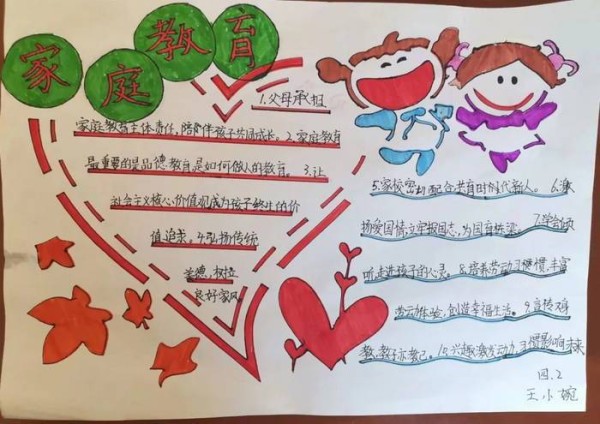 家庭教育
1.父母承担
家庭教育主体责任,陪伴孩子共同成长。2.家庭教育
最重要的是品德教育,是如何做人的教育。 3.让
社会主义核心价值观成为孩子终生的价
值追求。4.弘扬传统
美德,树立
良好家风
5.家校密切配合,共育时代新人。 6.涵
扬爱国情,立军报国志,为国育栋梁。 7.学会倾
听,走进孩子的心灵。8.培养劳动习惯,丰富
劳动体验,创造幸福生活。9.言传身
教,教子亦教己。10.兴趣激发动力,习惯影响未来
四.2
王小婉